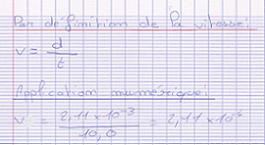 Par définition de la vitesse :
v = d / t
Application numérique :
v = 2,11 × 10⁻³ / 10,0 = 2,11 × 10⁻⁴